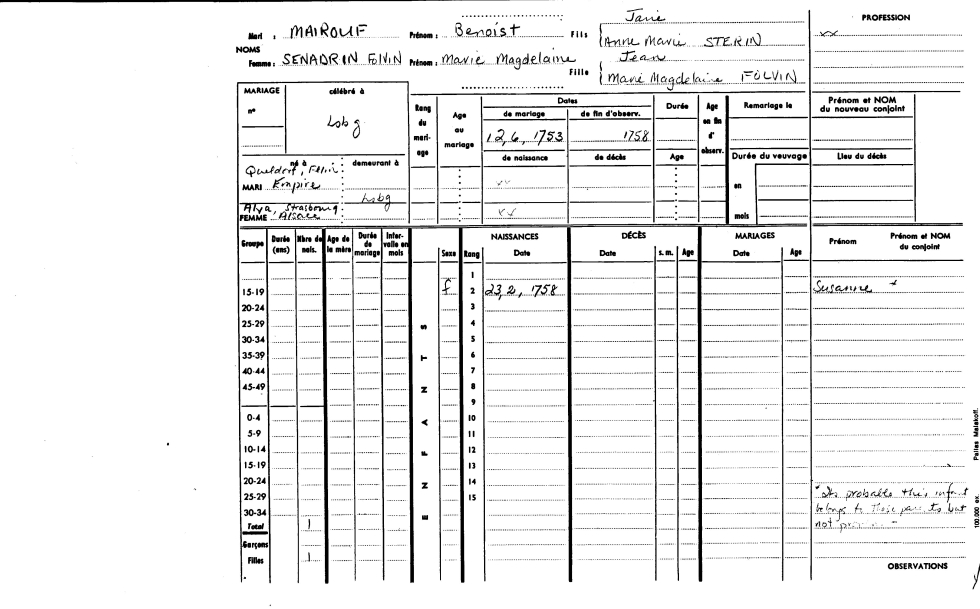 Janie
PROFESSION
Mari : MAIROUF Prénom : Benoist Fils Anne Marie STERIN xx
NOMS Jean
Femme : SENADRIN FOLVIN Prénom : Marie Magdelaine
Fille Marie Magdelaine FOLVIN
MARIAGE célébré à
n° Lsbg
Rang du mariage
Age au mariage
Dates
de mariage de fin d'observ.
12, 6, 1753 1758
de naissance de décès
Durée
Age
Age en fin d'observ.
Remariage le
Durée du veuvage
en
mois
Prénom et NOM du nouveau conjoint
Lieu du décès
né à demeurant à
MARI Empire
Lsbg
Strasbourg
FEMME Alsace
xx
xx
Groupe Durée (ans) Nbre de nais. Age de la mère Durée de mariage Intervalle en mois Sexe Rang NAISSANCES Date DÉCÈS Date s. m. Age MARIAGES Date Age Prénom Prénom et NOM du conjoint
1
15-19 f 2 23, 2, 1758 Susanne *
20-24 3
25-29 4
30-34 5
35-39 6
40-44 7
45-49 8
9
0-4 10
5-9 11
10-14 12
15-19 13
20-24 14
25-29 15
30-34
Total 1
Garçons
Filles 1
ENFANTS
* Its probable this infant
belongs to these parents but
not
OBSERVATIONS
100,000 ex. Paites Malakoff.